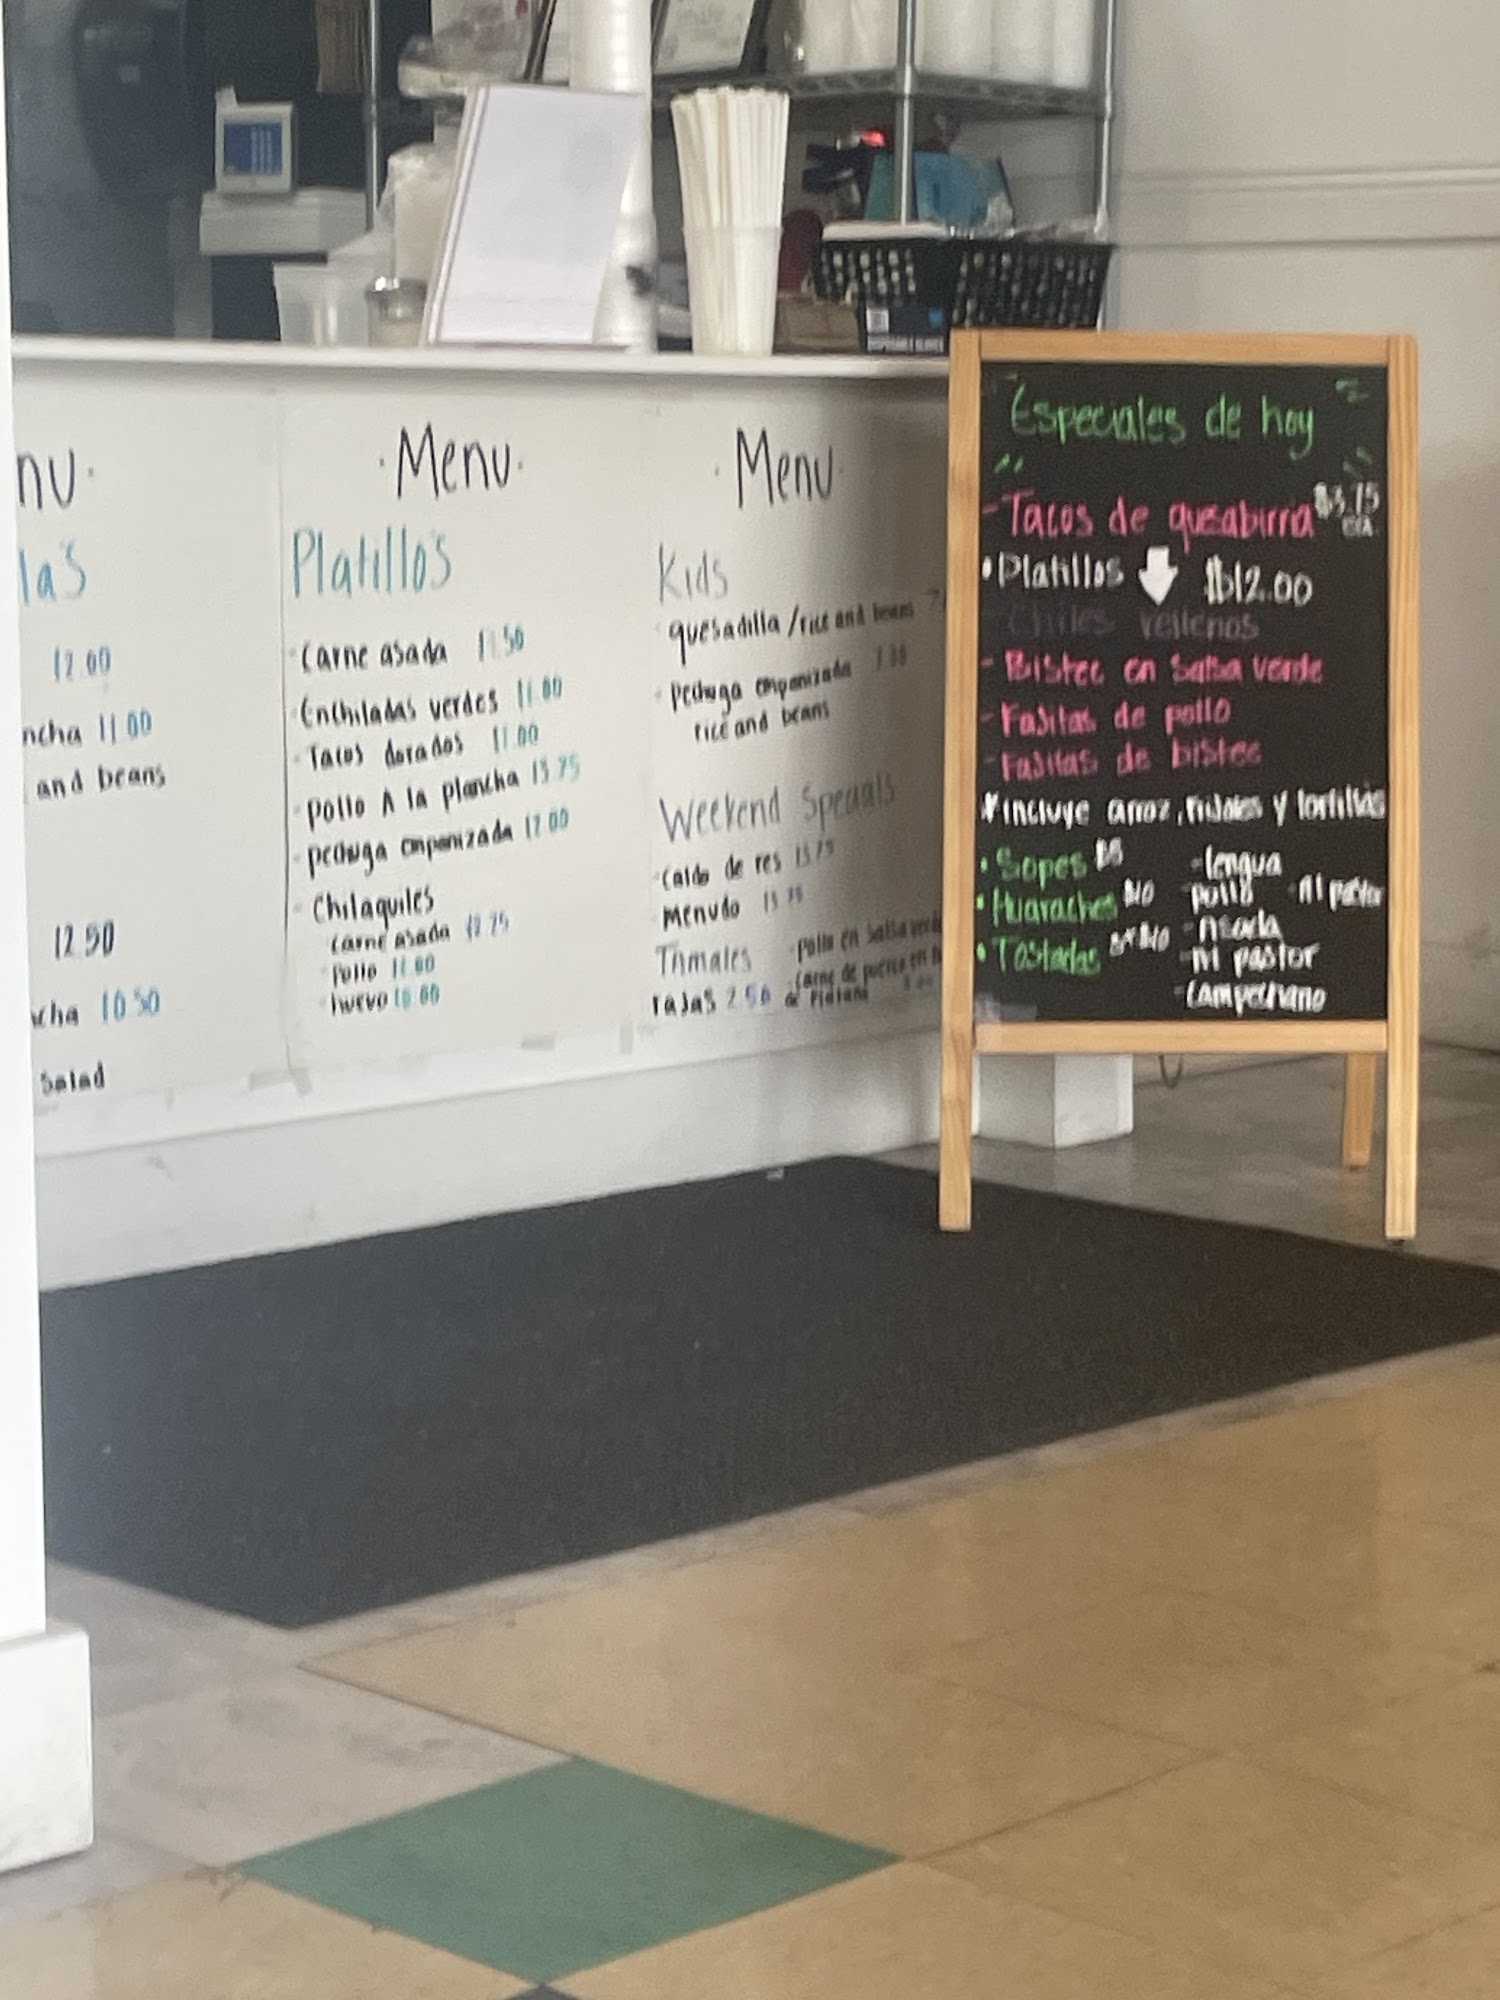 nu.
las
12.00
ncha 11.00
and beans
12.50
cha 10.50
Salad
·Menu·
Platillos
-Carne asada 11.50
-Enchiladas verdes 11.00
-Tacos dorados 11.00
-pollo A la plancha 13.75
-pechuga empanizada 12.00
-Chilaquiles
-carne asada
-pollo 11.00
-huevo
·Menu·
Kids
-quesadilla /rice and beans
-pechuga empanizada
rice and beans
Weekend Specials
-Caldo de res 13.75
-Menudo 13.75
Tamales -pollo en salsa verde
rajas 2.50 -carne de puerco en
Especiales de hoy
-Tacos de quesabirria $3.75
ea.
•Platillos $12.00
-Chiles rellenos
-Bistec en salsa verde
-Fajitas de pollo
-Fajitas de bistec
*incluye arroz, frijoles y tortillas
•Sopes -lengua
•Huaraches $10 -pollo -Al pastor
•Tostadas -Asada
-Al pastor
-Campechano
DISPOSABLE GLOVES